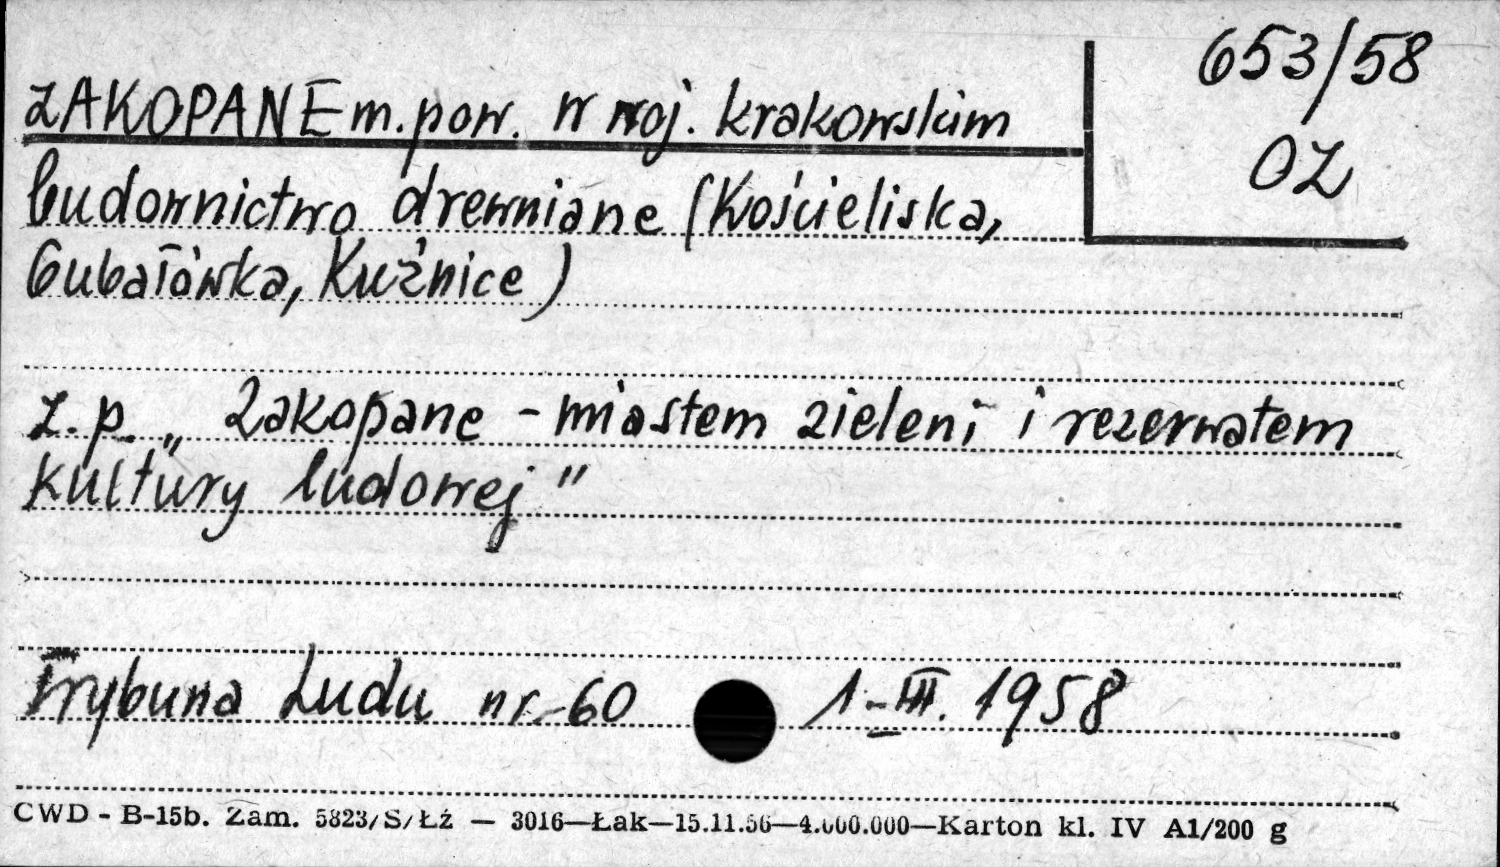 653/58
OZ
ZAKOPANE m. pow. w woj. krakowskim
budownictwo drewniane (Kościeliska,
Gubałówka, Kuźnice)
z.p. „Zakopane - miastem zieleni i rezerwatem
kultury ludowej"
Trybuna Ludu nr. 60 1-III. 1958
CWD - B-15b. Zam. 5823/S/Łź — 3016—Łak—15.11.56—4.000.000—Karton kl. IV A1/200 g